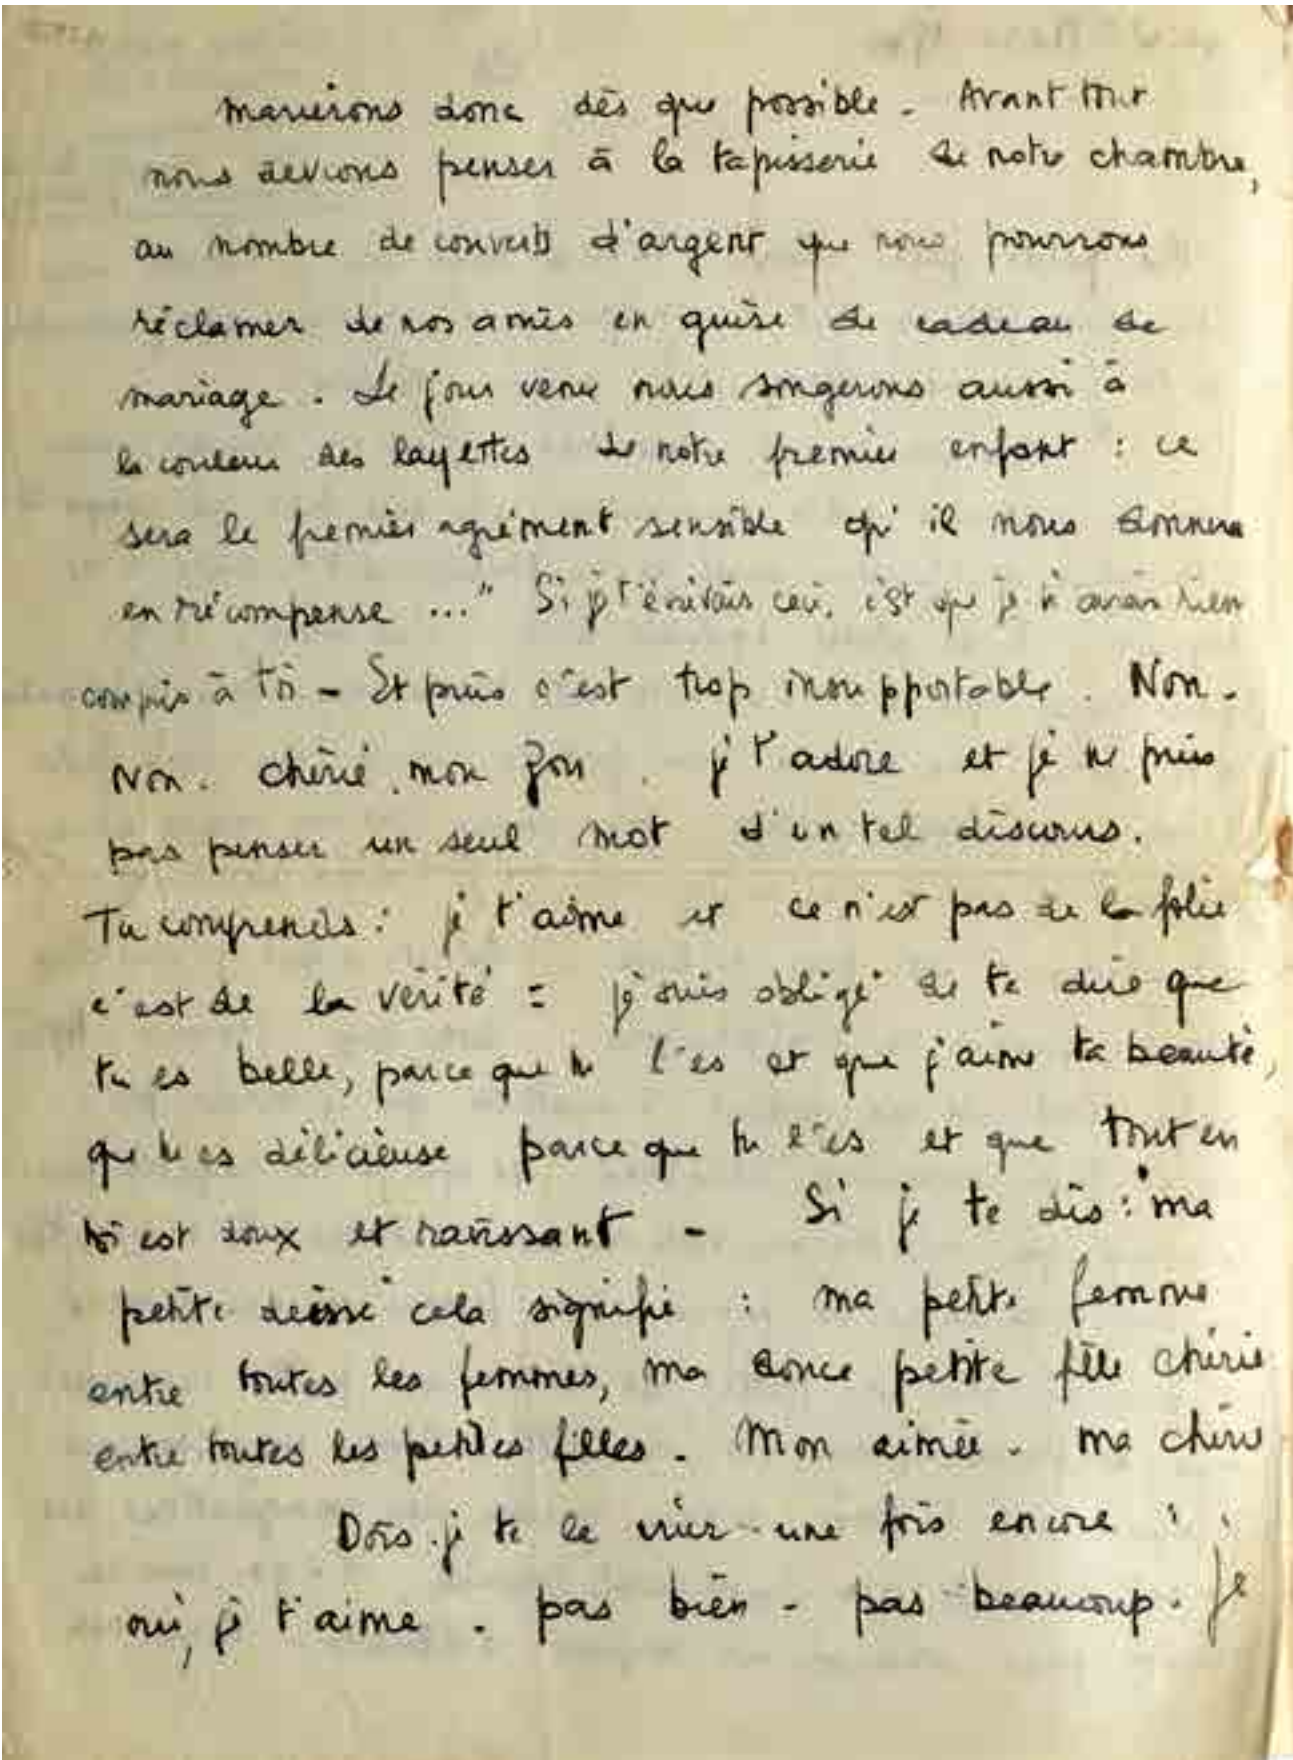 marierons donc dès que possible. Avant tout
nous devrons penser à la tapisserie de notre chambre,
au nombre de couverts d'argent que nous pourrons
réclamer de nos amis en guise de cadeau de
mariage. Le jour venu nous songerons aussi à
la couleur des layettes de notre premier enfant : ce
sera le premier agrément sensible qu'il nous donnera
en récompense ..." Si je t'écrivais ceci, c'est que je n'aurais rien
compris à toi - Et puis c'est trop insupportable. Non.
Non. chérie, mon . je t'adore et je ne puis
pas penser un seul mot d'un tel discours.
Tu comprends : je t'aime et ce n'est pas de la folie
c'est de la vérité : je suis obligé de te dire que
tu es belle, parce que tu l'es et que j'aime ta beauté,
que tu es délicieuse parce que tu l'es et que tout en
toi est doux et ravissant - Si je te dis : "ma
petite déesse" cela signifie : ma petite femme
entre toutes les femmes, ma douce petite fille chérie
entre toutes les petites filles. Mon aimée. ma chérie
Dois-je te le crier une fois encore :
oui, je t'aime. pas bien - pas beaucoup. Je